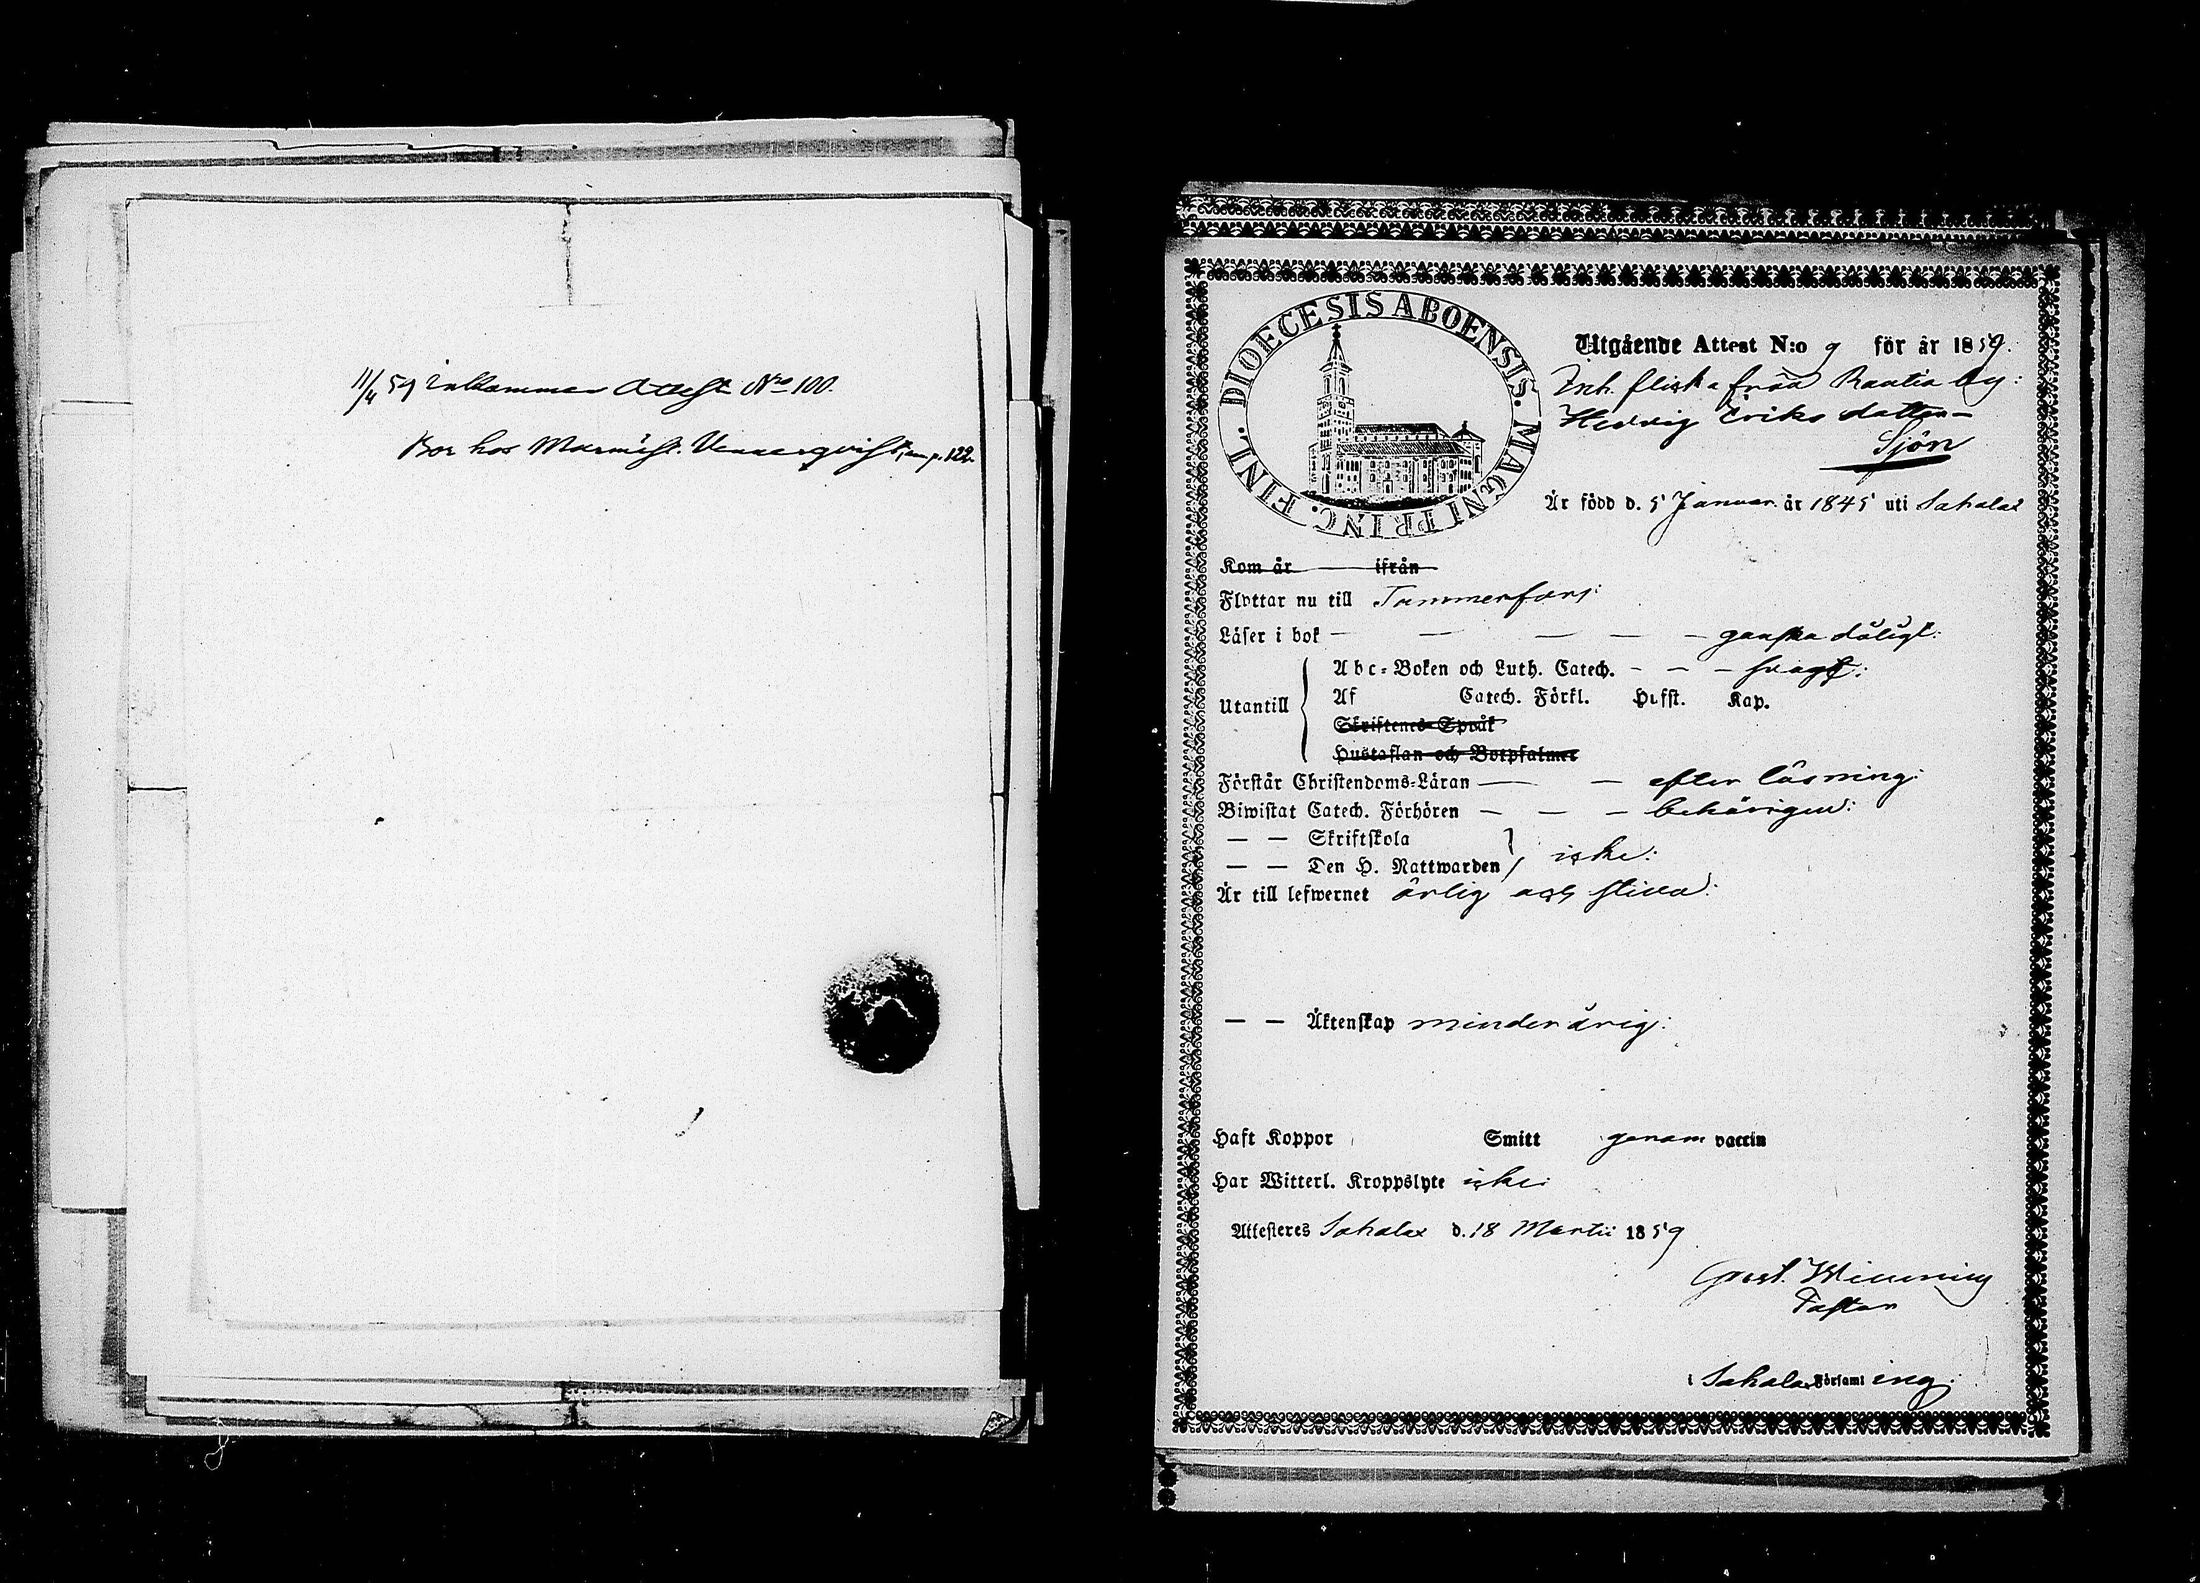 11/4 59 inkommen Attest No 100.
Bor hos
p. 122.
DIOECESIS ABOENSIS. MAGNI PRINC. FINL.
Utgående Attest N:o 9 för år 1859.
Inh. flicka från Rautia by:
Hedvig Eriks dotter
Sjön
Är född d. 5 Januar. år 1845 uti Sahalax
Kom år ifrån
Flyttar nu till Tammerfors:
Läser i bok — — — — — ganska dåligt:
Abc-Boken och Luth. Catech. — — — svagt:
Utantill
Af Catech. Förkl. Hufst. Kap.
Skriftenes Språk
Hustaflan och Botpsalmer
Förstår Christendoms-Läran — — efter läsning:
Biwistat Catech. Förhören — — — behörigen:
— — Skriftskola
— — Den H. Nattwarden } icke:
Är till lefwernet ärlig och stilla:
— — Äktenskap minderårig:
Haft Koppor Smitt genom vaccin
Har Witterl. Kroppslyte icke:
Attesteres Sahalax d. 18 Martii 1859
Gust. Winning
Pastor
i Sahalax Församling.